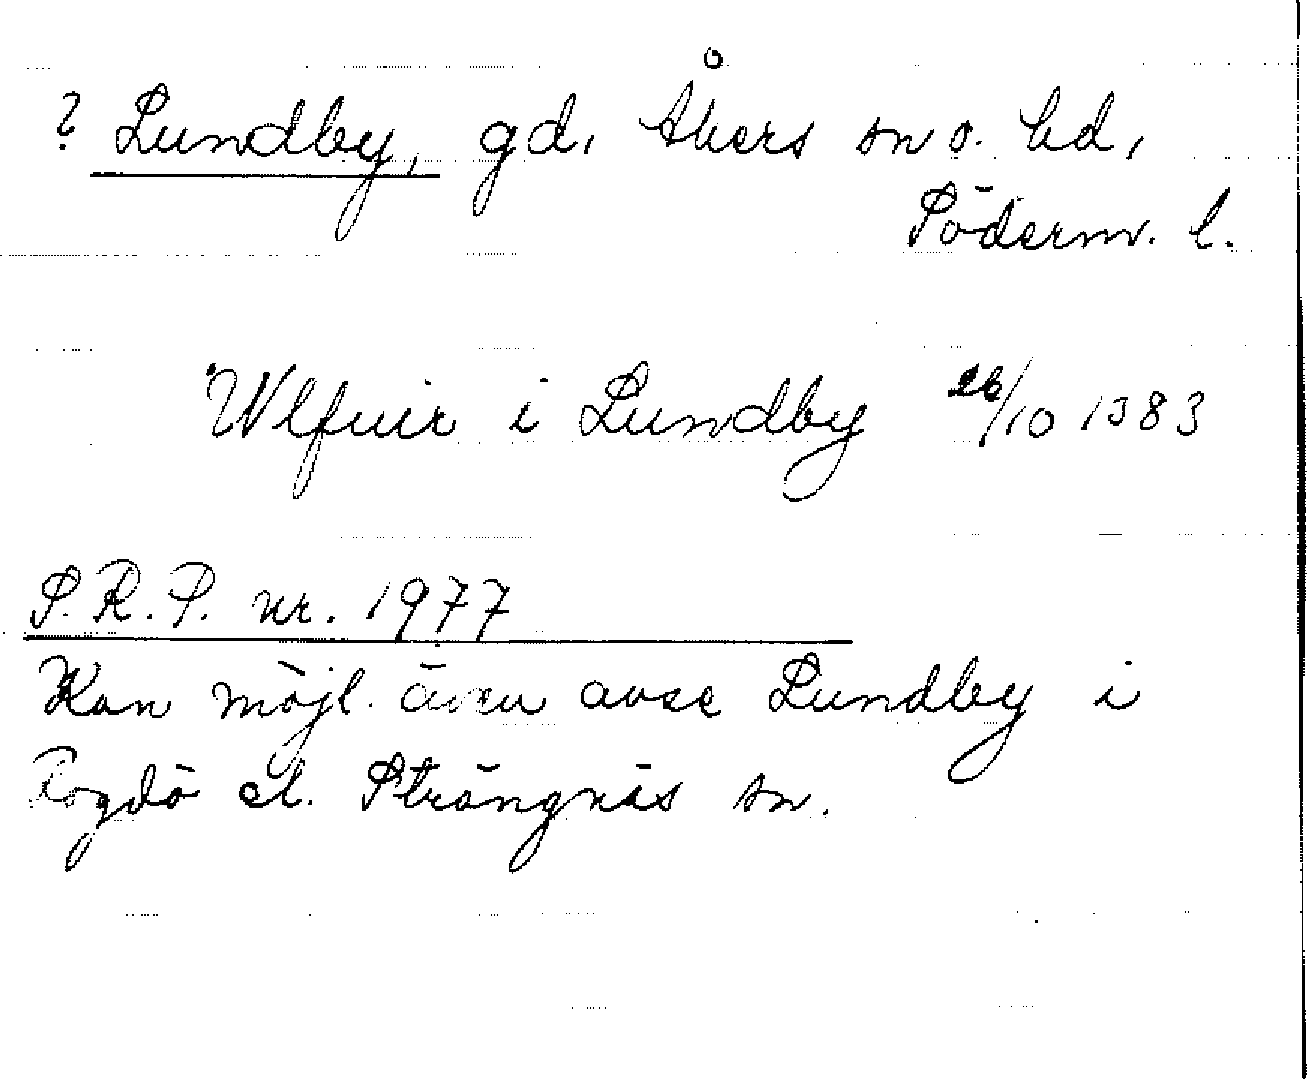 ? Lundby, gd, Åkers sn o. hd,
Söderm. l.
Wlfuir i Lundby 26/10 1383
S.R.P. nr. 1977
Kan möjl. även avse Lundby i
Fogdö el. Strängnäs sn.